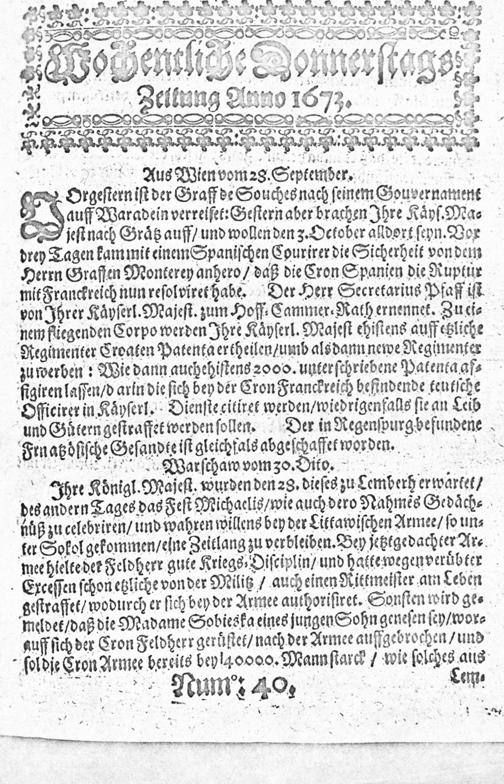 Wochentliche Donnerstags
Zeitung Anno 1673.
Aus Wien vom 28. September.
VOrgestern ist der Graff de Souches nach seinem Gouvernament
auff Waradein verreiset: Gestern aber brachen Ihre Käys. Ma-
jest nach Grätz auff / und wollen den 3. October alldort seyn. Vor
drey Tagen kam mit einem Spanischen Courirer die Sicherheit von dem
Herrn Graffen Monterey anhero / daß die Cron Spanien die Ruptur
mit Franckreich nun resolviret habe. Der Herr Secretarius Pfaff ist
von Ihrer Käyserl. Majest. zum Hoff-Cammer-Rath ernennet. Zu ei-
nem fliegenden Corpo werden Ihre Käyserl. Majest ehistens auff etzliche
Regimenter Croaten Patenta ertheilen / umb alsdann newe Regimenter
zu werben : Wie dann auch ehistens 2000. unterschriebene Patenta af-
figiren lassen / darin die sich bey der Cron Franckreich befindende teutsche
Officirer in Käyserl. Dienste citiret werden / wiedrigenfalls sie an Leib
und Gütern gestraffet werden sollen. Der in Regenspurg befundene
Frnatzösische Gesandte ist gleichfals abgeschaffet worden.
Warschaw vom 30. Dito.
Ihre Königl. Majest. wurden den 28. dieses zu Lemberh erwartet /
des andern Tages das Fest Michaelis / wie auch dero Nahmes Gedäch-
nüß zu celebriren / und wahren willens bey der Littawischen Armee / so un-
ter Sokol gekommen / eine Zeitlang zu verbleiben. Bey jetztgedachter Ar-
mee hielte der Feldherr gute Kriegs-Disciplin / und hatte wegen verübter
Excessen schon etzliche von der Militz / auch einen Rittmeister am Leben
gestraffet / wodurch er sich bey der Armee authorisiret. Sonsten wird ge-
meldet / daß die Madame Sobieska eines jungen Sohn genesen sey / wor-
auff sich der Cron Feldherr gerüstet / nach der Armee auffgebrochen / und
sol die Cron Armee bereits bey 40000. Mann starck / wie solches aus
Lem-
Num°: 40.